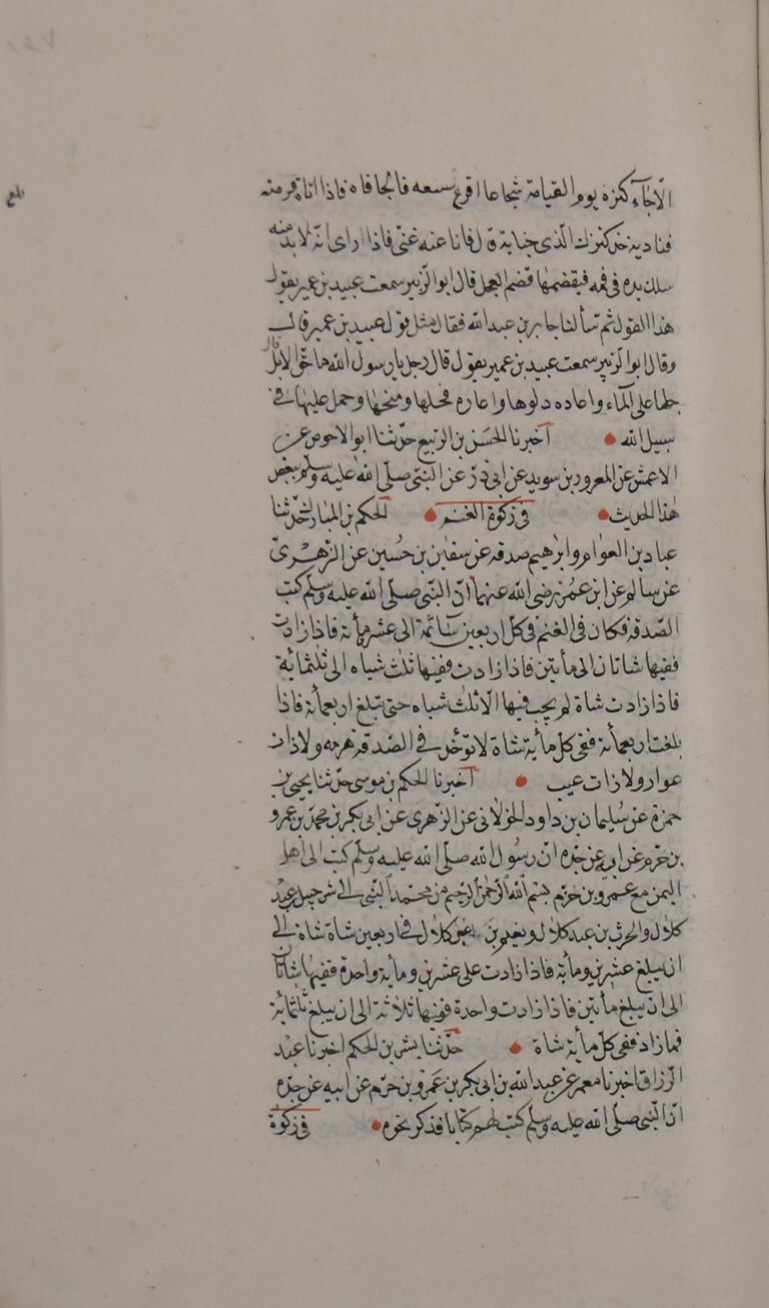 الّا جاء كنزه يوم القيامة شجاعا اقرع يسعه فاتحا فاه فاذا اتاه فر منه
فناديه خذ كنزك الّذى خبأته قال فانا عنه غنىّ فاذا راى انّه لا بد منه
سلك يده فى فمه فيقضمها قضم الفحل قال ابو الزبير سمعت عبيد بن عمير يقول
هذا القول ثم سألنا جابر بن عبد الله فقال مثل قول عبيد بن عمير قال
وقال ابو الزبير سمعت عبيد بن عمير يقول قال رجل يا رسول الله ما حق الابل قال
حلبها على الماء واعاده دلوها واعاره فحلها ومنحها وحمل عليها فى
سبيل الله اخبرنا الحسن بن الربيع حدثنا ابو الاحوص عن
الاعمش عن المعرور بن سويد عن ابى ذرّ عن النبى صلّى الله عليه وسلم ببعض
هذا الحديث فى زكوة الغنم الحكم بن المبارك حدّثنا
عباد بن العوام وابرهيم صدقه عن سفين بن حسين عن الزهرىّ
عن سالم عن ابن عمر رضى الله عنهما انّ النّبى صلّى الله عليه وسلم كتب
الصّدقة فكان فى الغنم فى كلّ اربعين سائمة الى عشر ومأية فاذا زادت
ففيها شاتان الى مأتين فاذا زادت ففيها ثلث شياه الى ثلثمائة
فاذا زادت شاة لم يجب فيها الّا ثلث شياه حتى تبلغ اربعمأية فاذا
بلغت اربعمأية ففى كل مأية شاة لا تؤخذ فى الصّدقة هرمه ولا ذات
عوار ولا ذات عيب اخبرنا الحكم بن موسى حدّثنا يحيى بن
حمزة عن سليمان بن داود الخولانى عن الزّهرى عن ابى بكر بن محمد بن عمرو
بن حزم عن ابيه عن جدّه انّ رسول الله صلّى الله عليه وسلّم كتب الى اهل
اليمن مع عمرو بن حزم بسم الله الرّحمن الرّحيم من محمد النّبى الى شرحبيل بن عبد
كلال والحرث بن عبد كلال ونعيم بن عبد كلال فى اربعين شاة شاة الى
ان يبلغ عشرين ومأية فاذا زادت على عشرين ومأية واحدة ففيها شاتان
الى ان يبلغ مأتين فاذا زادت واحدة ففيها ثلاثة الى ان يبلغ ثلثمائة
فما زاد ففى كل مأية شاة حدّثنا بشر بن الحكم اخبرنا عبد
الرزاق اخبرنا معمر عن عبد الله بن ابى بكر بن عمرو بن حزم عن ابيه عن جدّه
انّ النّبى صلّى الله عليه وسلم كتب لهم كتابا فذكر نحوه فى زكوة